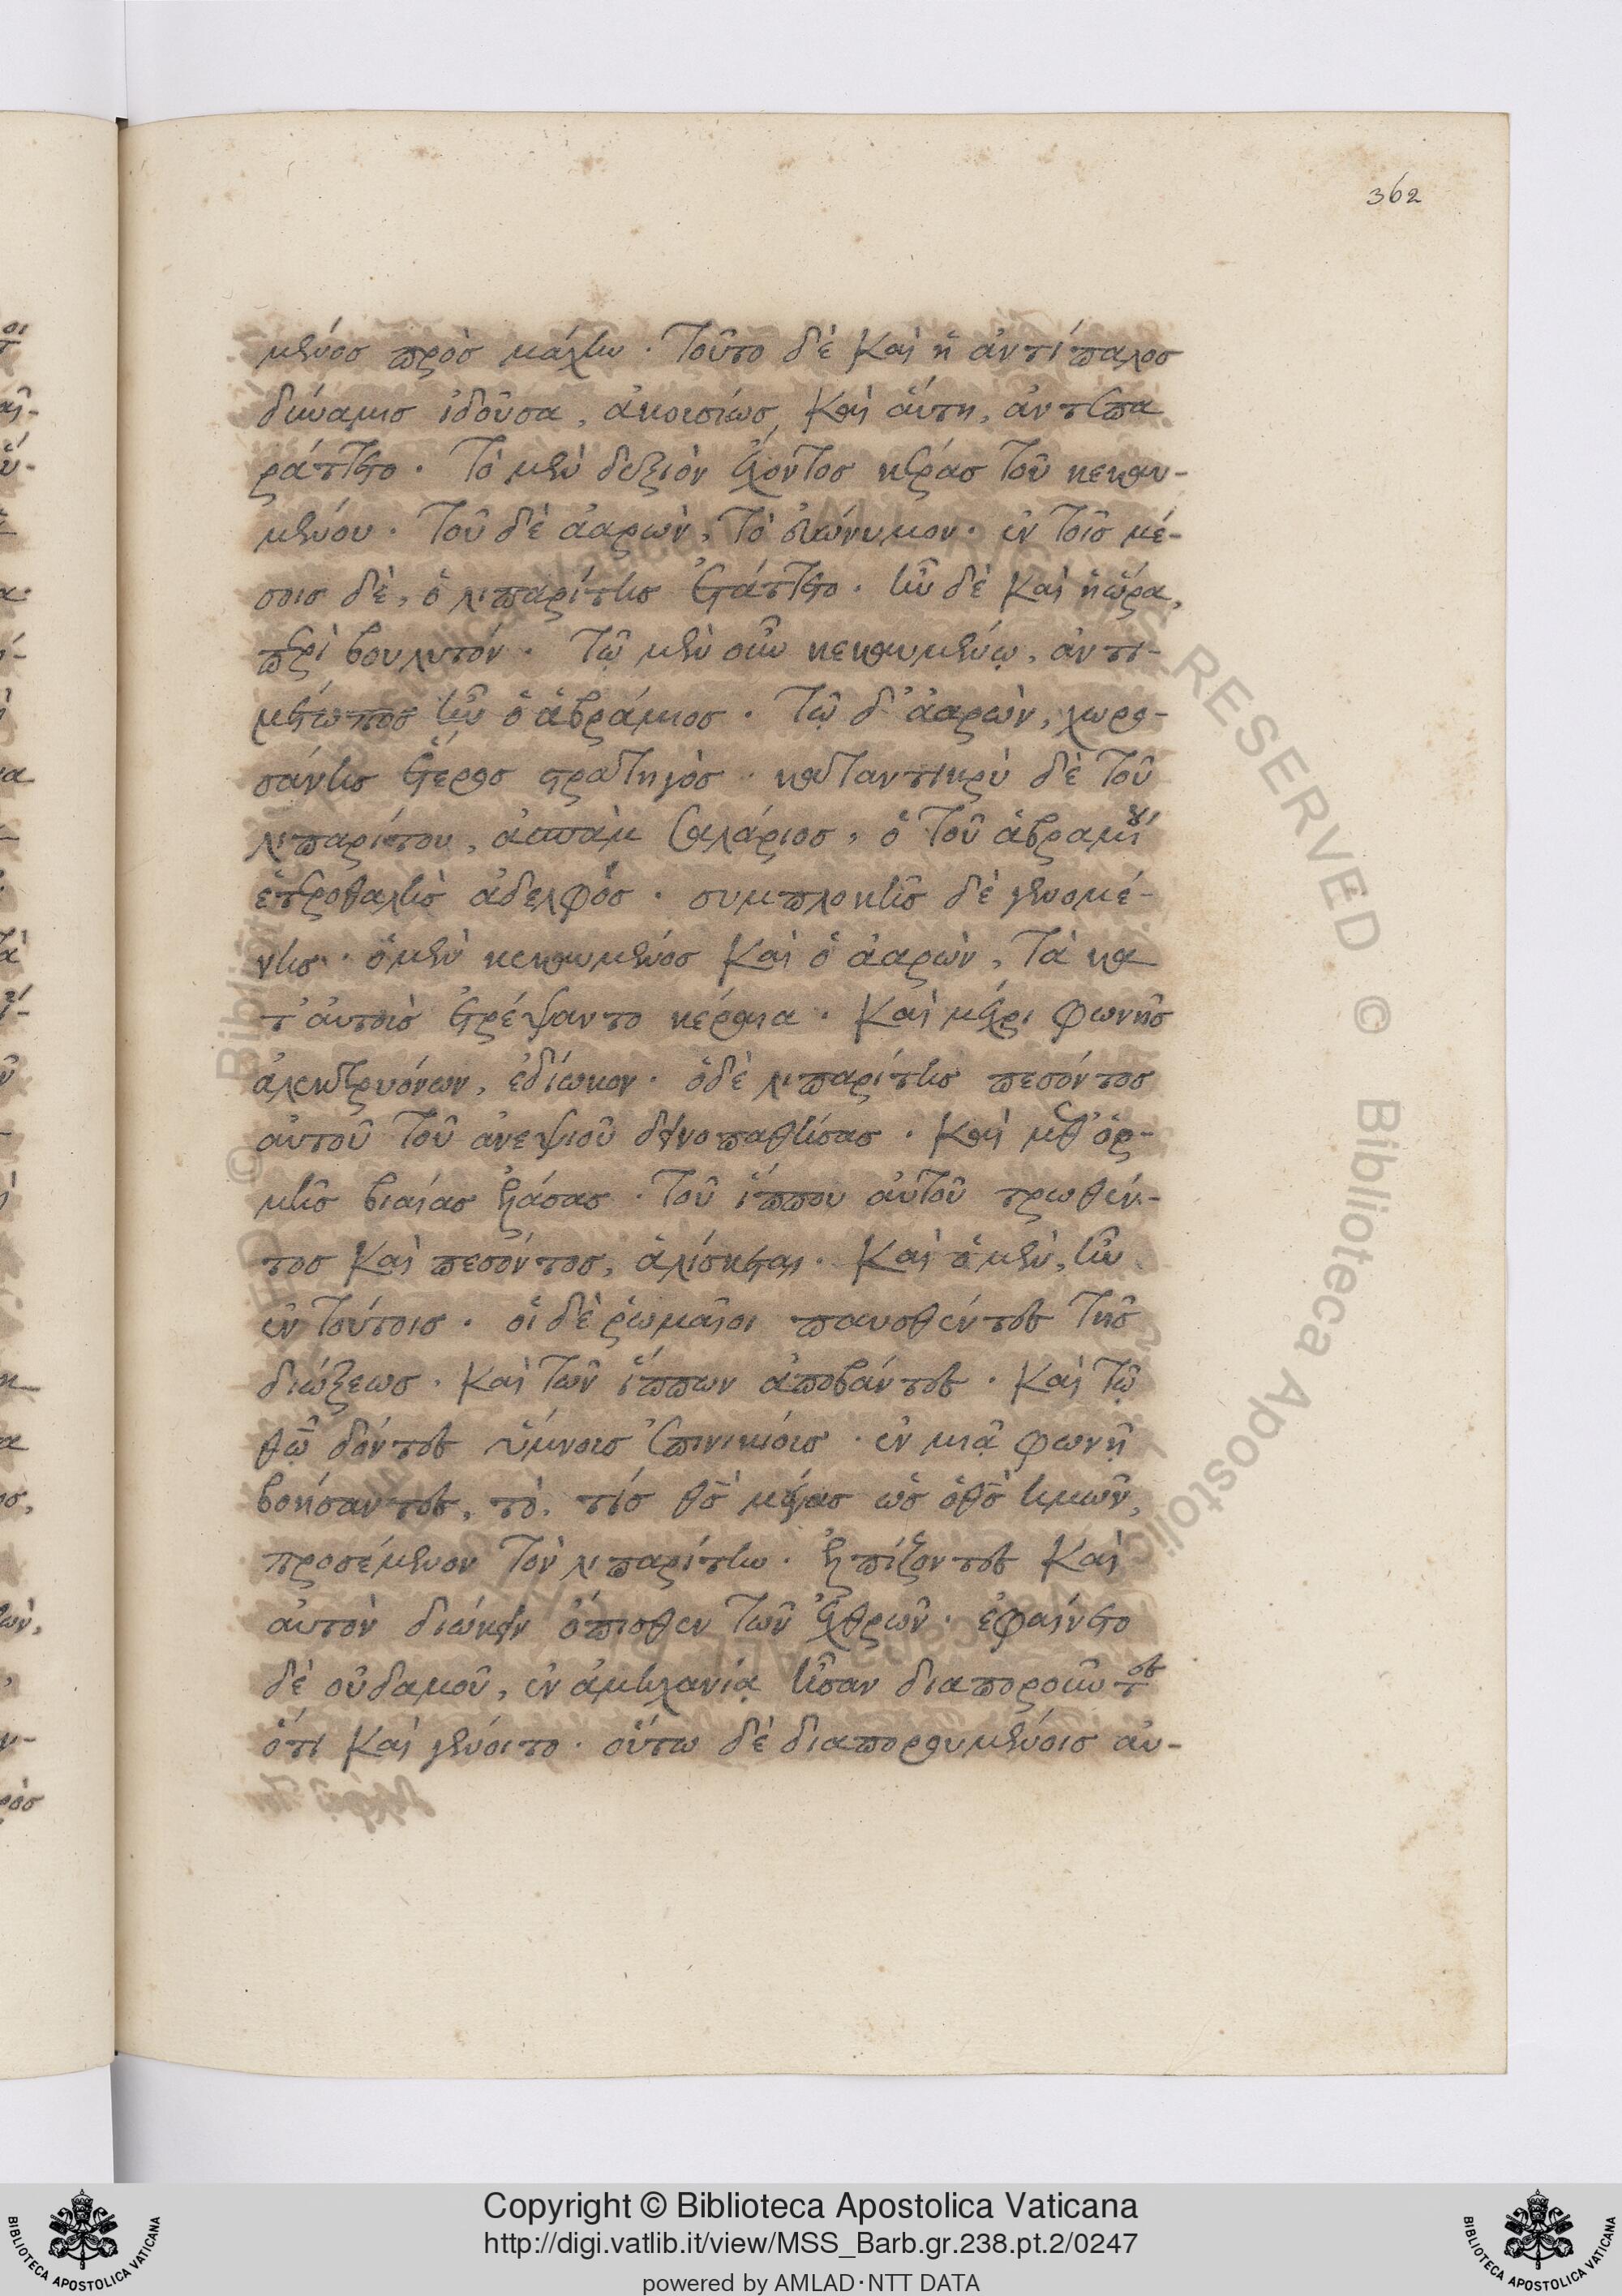 362
μενος πρὸς μάχην · Τοῦτο δὲ καὶ ἡ ἀντίπαλος
δύναμις ἰδοῦσα, ἀκουσίως καὶ αὕτη, ἀντιπα
ράττετο · Τὸ μὲν δεξιὸν ἔχοντος κέρας τοῦ κεκαυ-
μένου · Τοῦ δὲ ἀαρὼν, τὸ εὐώνυμον · ἐν τοῖς μέ-
σοις δὲ, ὁ λιπαρίτης ἐτάττετο · ἦν δὲ καὶ ἡ ὥρα,
περὶ βουλυτόν · Τῷ μὲν οὖν κεκαυμένῳ, ἀντι-
μέτωπος ἦν ὁ ἀβράμιος · Τῷ δ' ἀαρὼν, χωρο-
σάντης ἕτερος στρατηγὸς · καταντικρὺ δὲ τοῦ
λιπαρίτου, ἀσπὰμ σαλάριος, ὁ τοῦ ἀβραμίου
ἑτεροθαλὴς ἀδελφὸς · συμπλοκῆς δὲ γενομέ-
νης · ὁ μὲν κεκαυμένος καὶ ὁ ἀαρὼν, τὰ κα
τ' αὐτοὺς ἐτρέψαντο κέρατα · καὶ μέχρι φωνῆς
ἀλεκτρυόνων, ἐδίωκον · ὁ δὲ λιπαρίτης πεσόντος
αὐτοῦ τοῦ ἀνεψιοῦ δεινοπαθήσας · καὶ μεθ' ὁρ-
μῆς βιαίας ἐλάσας · τοῦ ἵππου αὐτοῦ τρωθέν-
τος καὶ πεσόντος, ἁλίσκεται · καὶ ὁ μὲν, ἦν
ἐν τούτοις · οἱ δὲ ῥωμαῖοι παυσθέντες τῆς
διώξεως · καὶ τῶν ἵππων ἀποβάντες · καὶ τῷ
θῷ δόντες ὕμνοις ἐπινικίοις · ἐν μιᾷ φωνῇ
βοήσαντες, τὸ, τίς θς μέγας ὡς ὁ θς ἡμῶν,
προσέμενον τὸν λιπαρίτην · ἐλπίζοντες καὶ
αὐτὸν διώκειν ὄπισθεν τῶν ἐχθρῶν · ἐφαίνετο
δὲ οὐδαμοῦ, ἐν ἀμηχανίᾳ ἦσαν διαποροῦντες
ὅτι καὶ γένοιτο · οὕτω δὲ διαπορουμένοις αὐ-
Copyright © Biblioteca Apostolica Vaticana
http://digi.vatlib.it/view/MSS_Barb.gr.238.pt.2/0247
powered by AMLAD·NTT DATA